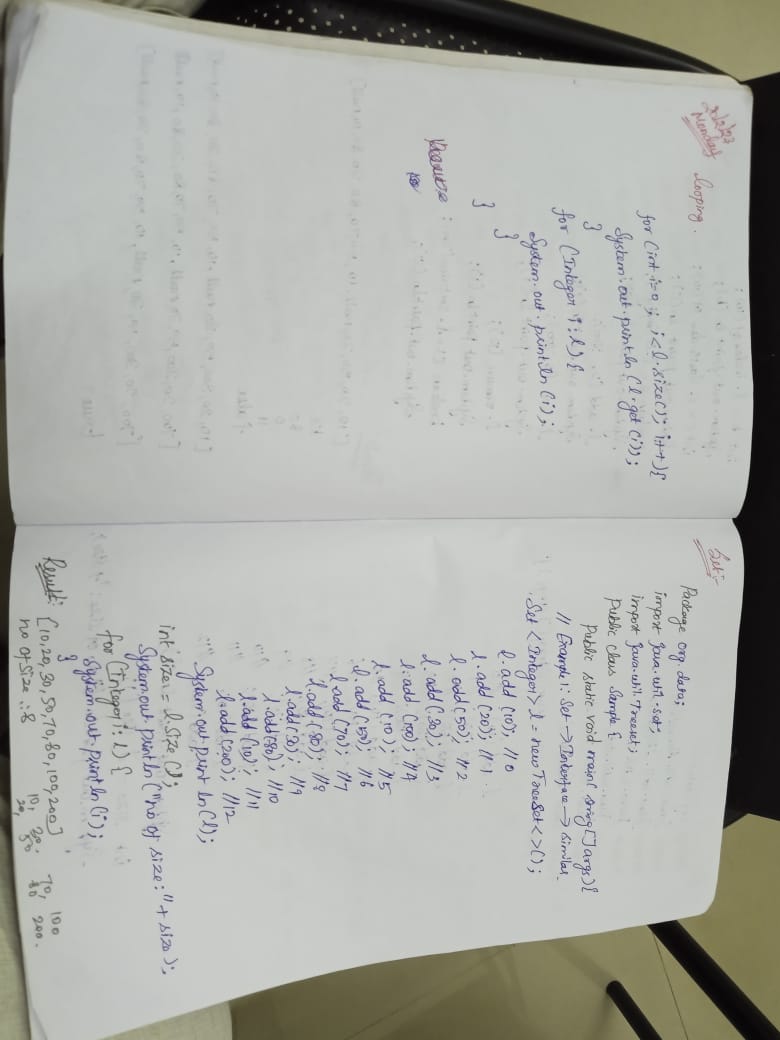 Monday
looping.
for (int i=0 ; i<l.size(); i++){
System.out.println (l.get (i));
}
for (Integer i:l) {
System.out.println (i);
}
}
Set:-
Package org.data;
import java.util.set;
import java.util.Treeset;
Public class Sample {
Public static void main( string[]args){
// Example 1: Set → Interface → similar.
Set <Integer> l = new TreeSet<>();
l.add (10); //0
l.add (20); //1
l.add (50); //2
l.add (30); //3
l.add (100); //4
l.add (10); //5
l.add (50); //6
l.add (70); //7
l.add (80); //8
l.add (30); //9
l.add (80); //10
l.add (10); //11
l.add (200); //12
System.out.println(l);
int size = l.size();
System.out.println ("no of size:"+size);
for (Integer i: l) {
System.out.println (i);
}
Result: [10,20,30,50,70,80,100,200]
no of size :: 8
10, 30, 70, 100
20, 50 80 200.